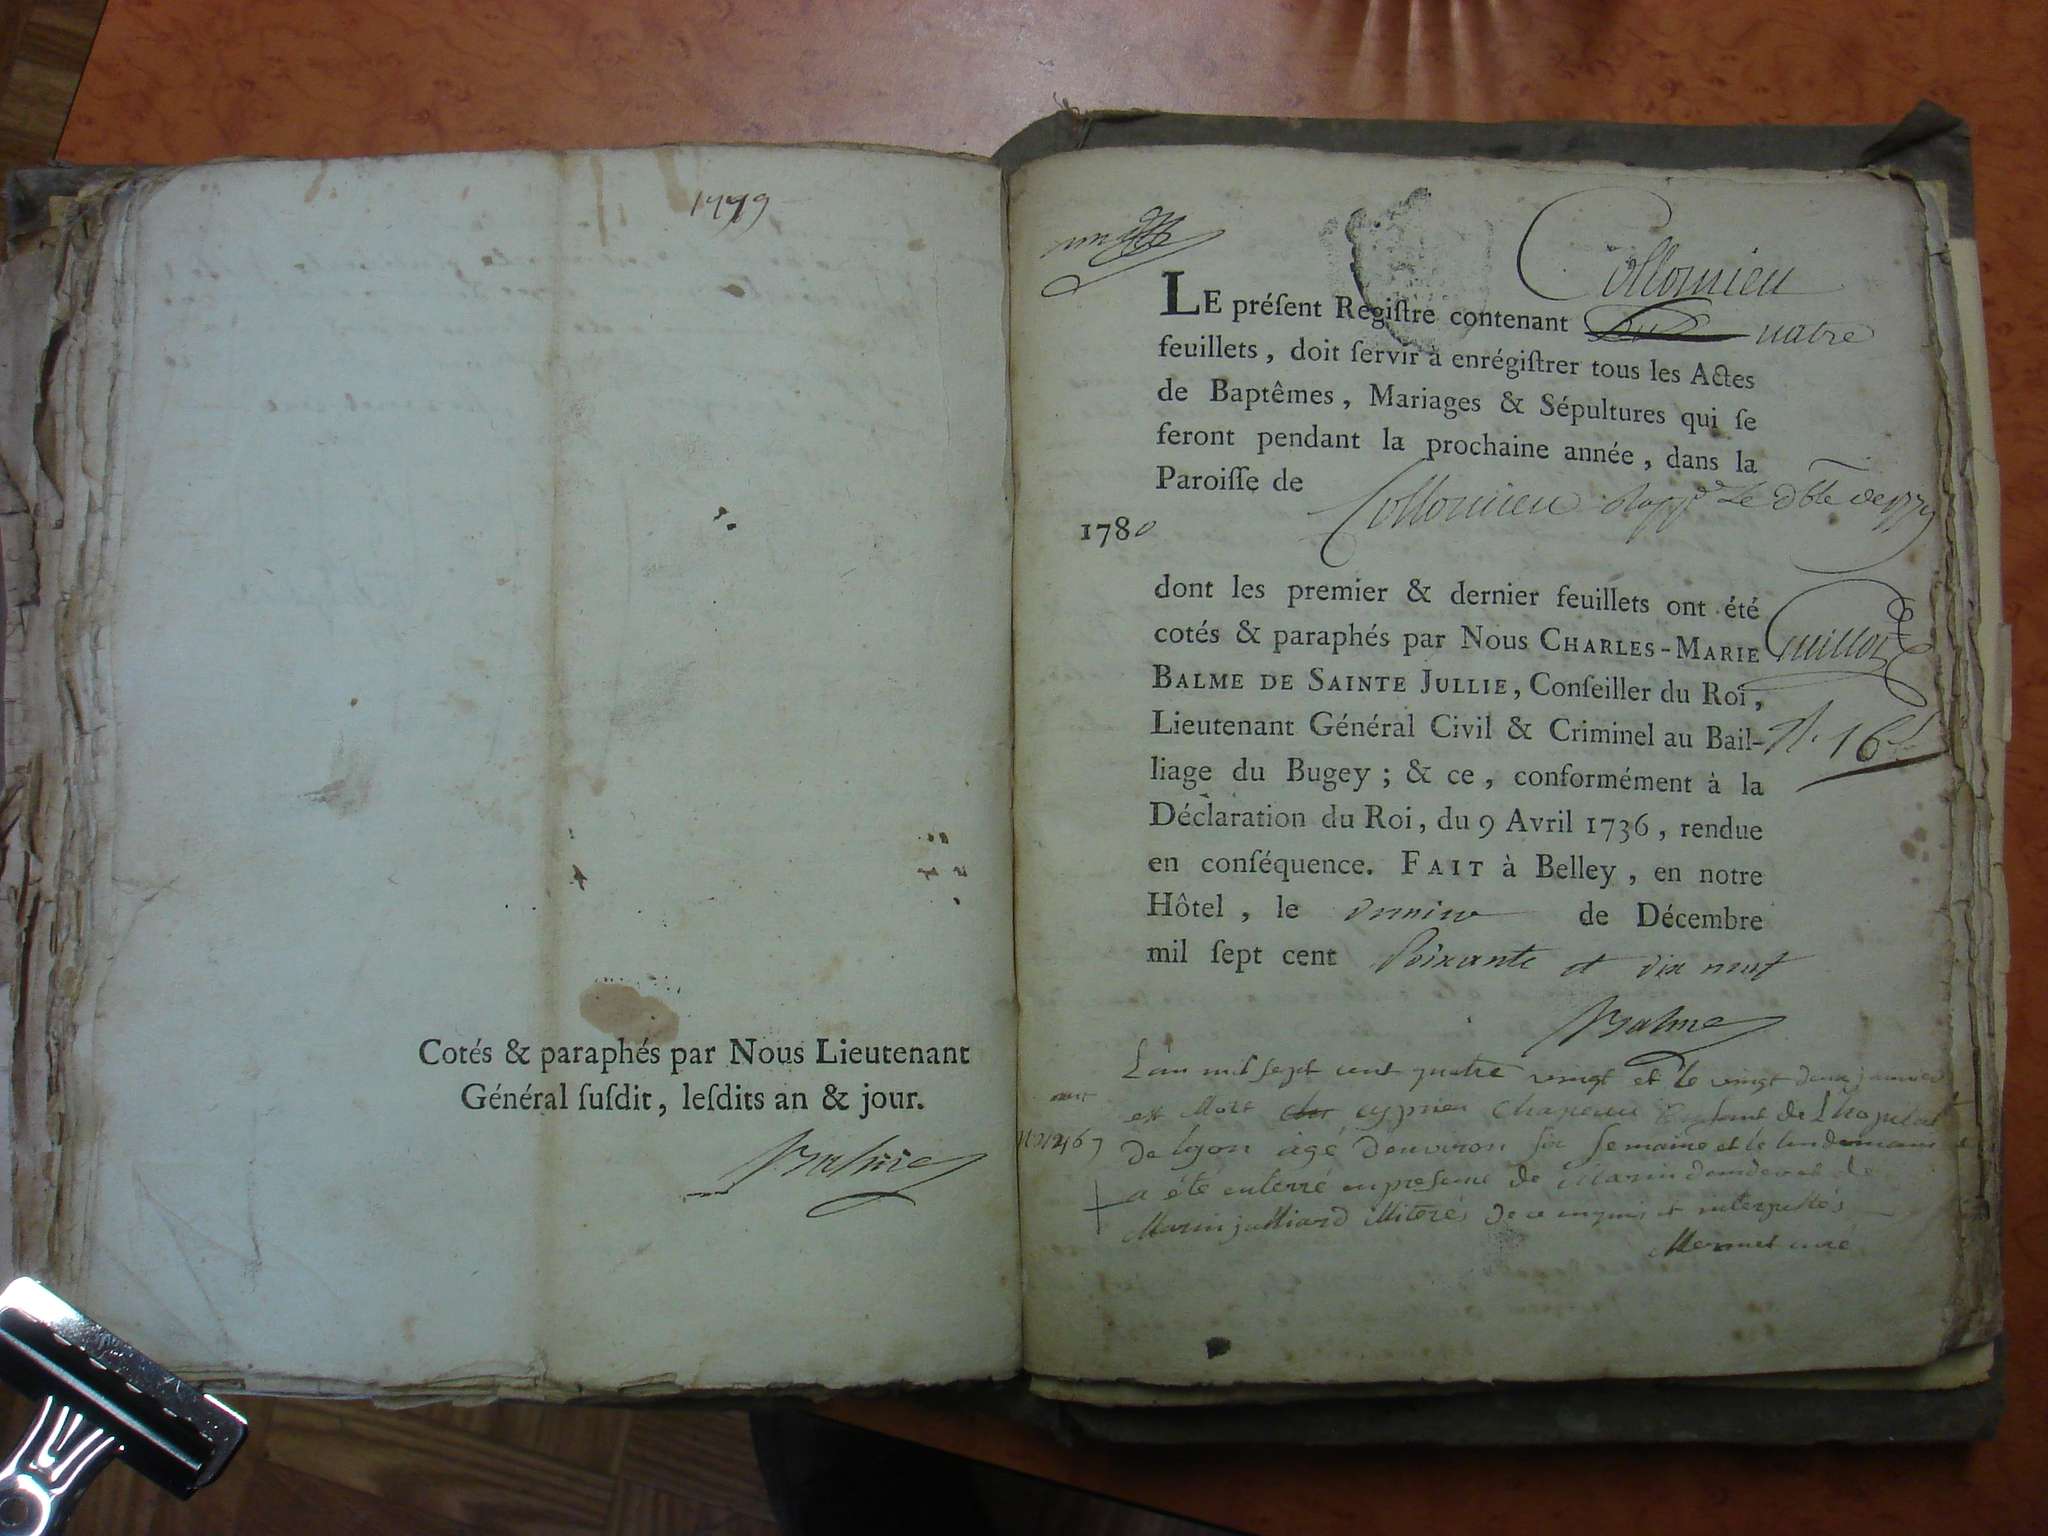 1779
Cotés & paraphés par Nous Lieutenant
Général ſuſdit, leſdits an & jour.
Balme
Collomieu
LE préſent Regiſtre contenant quatre
feuillets, doit ſervir à enrégiſtrer tous les Actes
de Baptêmes, Mariages & Sépultures qui ſe
feront pendant la prochaine année, dans la
Paroiſſe de Collomieu
1780
dont les premier & dernier feuillets ont été
cotés & paraphés par Nous CHARLES-MARIE
BALME DE SAINTE JULLIE, Conſeiller du Roi,
Lieutenant Général Civil & Criminel au Bail-
liage du Bugey ; & ce, conformément à la
Déclaration du Roi, du 9 Avril 1736, rendue
en conſéquence. FAIT à Belley, en notre
Hôtel, le dernier de Décembre
mil ſept cent Soixante et dix neuf
Guillot
N. 16
Balme
L'an mil sept cent quatre vingt et le vingt deux janvier
est Mort cyprien Chapeau Enfant de L'hopital
de lyon agé d'environ six semaine et le lendemain
a été enterré en presence de Marin et de
Marin julliard illiterés de ce enquis et interpellés
Mermet curé